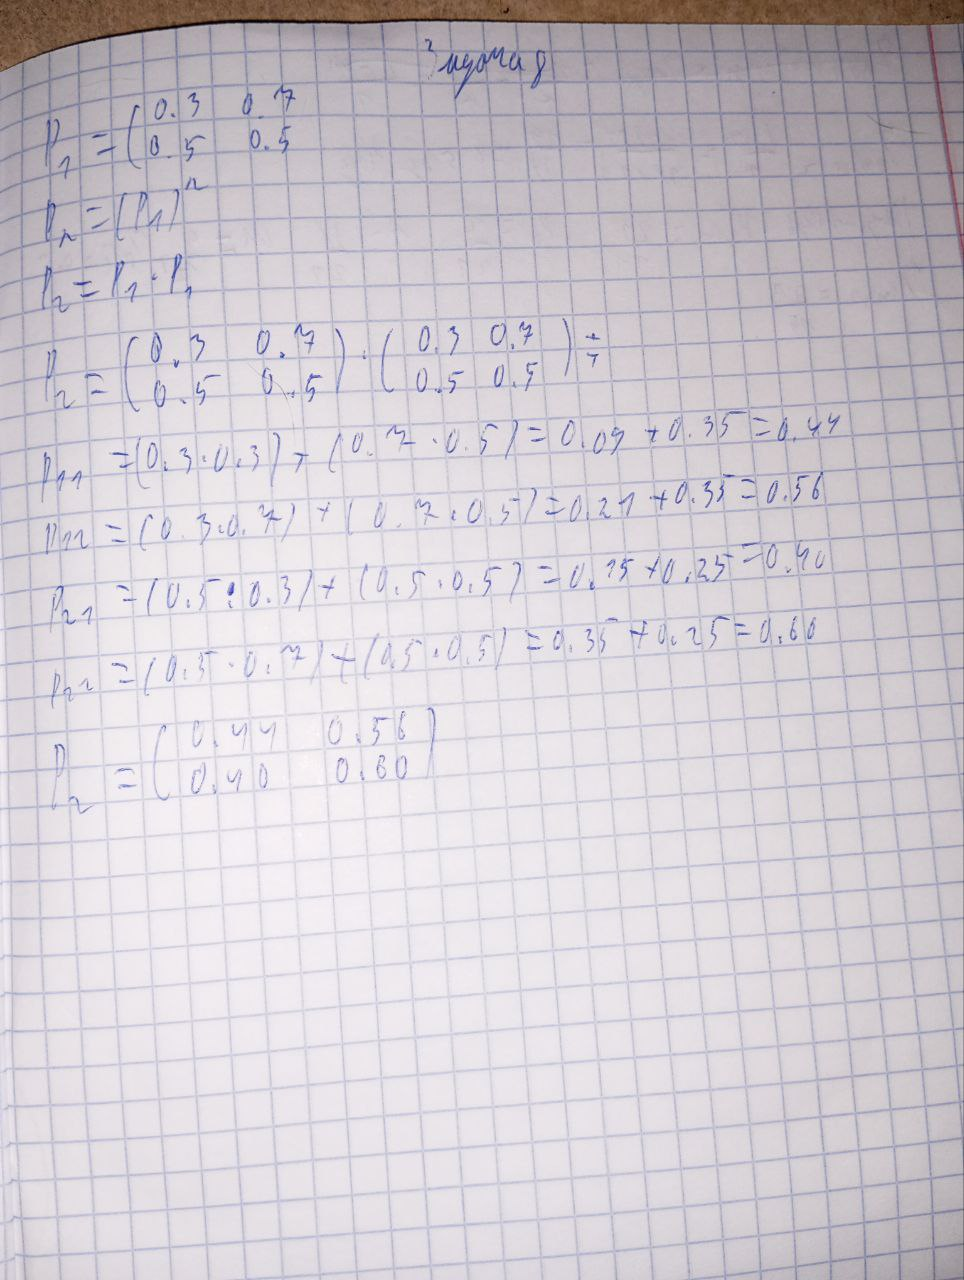 Задача 8
P₁ = (0.3 0.7
0.5 0.5
Pₙ = (P₁)ⁿ
P₂ = P₁ · P₁
P₂ = (0.3 0.7) · (0.3 0.7) =
0.5 0.5 0.5 0.5
P₁₁ = (0.3·0.3) + (0.7·0.5) = 0.09 + 0.35 = 0.44
P₁₂ = (0.3·0.7) + (0.7·0.5) = 0.21 + 0.35 = 0.56
P₂₁ = (0.5·0.3) + (0.5·0.5) = 0.15 + 0.25 = 0.40
P₂₂ = (0.5·0.7) + (0.5·0.5) = 0.35 + 0.25 = 0.60
P₂ = (0.44 0.56)
0.40 0.60